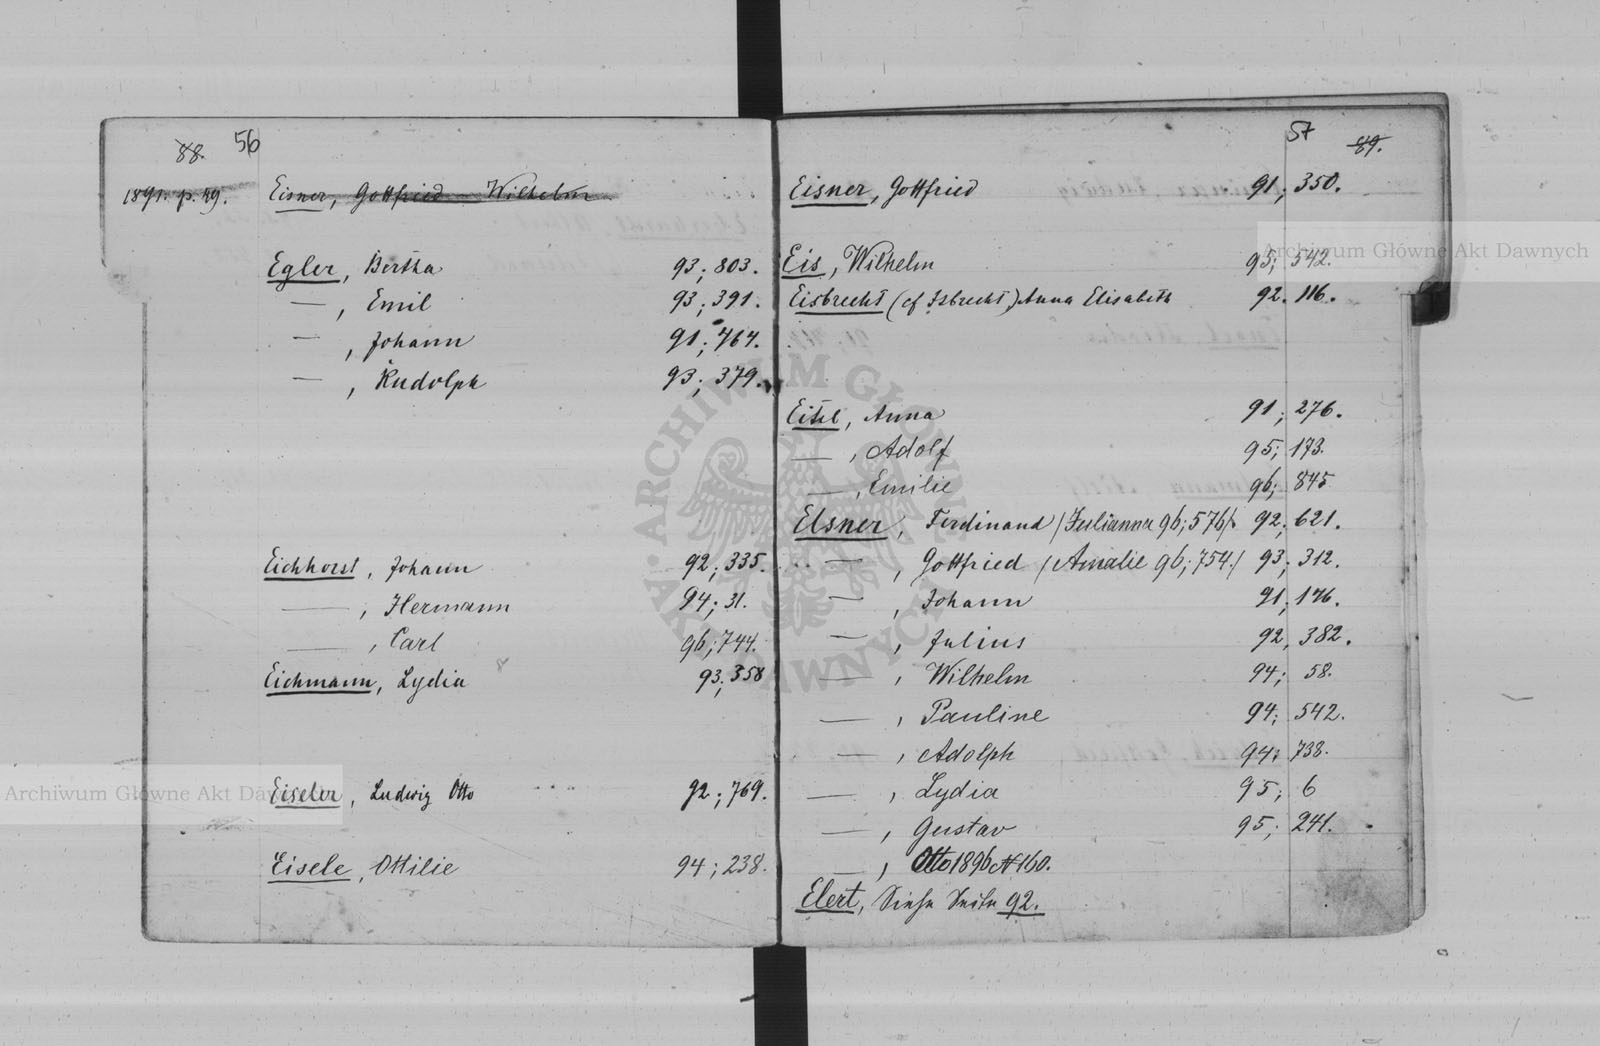 88. 56
1891. p. 49. Eisner, Gottfried Wilhelm
Egler, Bertha 93; 803.
—, Emil 93; 391.
—, Johann 91; 764.
—, Rudolph 93; 379.
Eichhorst, Johann 92; 335.
—, Hermann 94; 31.
—, Carl 96; 744.
Eichmann, Lydia 93; 358
Eiseler, Ludwig Otto 92; 769.
Eisele, Ottilie 94; 238.
57 89.
Eisner, Gottfried 91; 350.
Eis, Wilhelm 95; 542.
Eisbrecht (cf Isbrecht), Anna Elisabeth 92. 116.
Eitel, Anna 91; 276.
—, Adolf 95; 173.
—, Emilie 96; 845
Elsner, Ferdinand /Julianna 96; 576/ 92; 621.
—, Gottfried /Amalie 96; 754./ 93; 312.
—, Johann 91; 176.
—, Julius 92, 382.
—, Wilhelm 94; 58.
—, Pauline 94; 542.
—, Adolph 94; 738.
—, Lydia 95; 6
—, Gustav 95; 241.
—, Otto 1896 N 160.
Elert, Siehe Seite 92.
Archiwum Główne Akt Dawnych
Archiwum Główne Akt Dawnych
ARCHIWUM GŁÓWNE AKT DAWNYCH